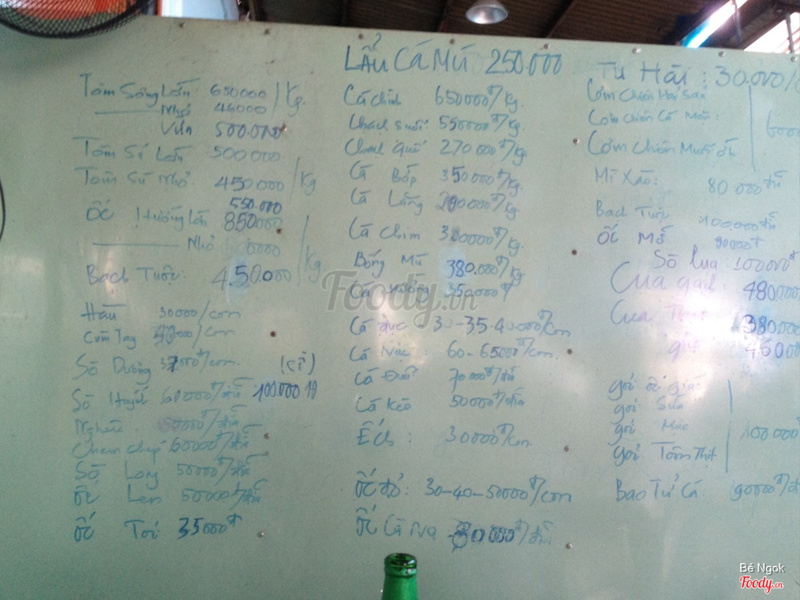 LẨU CÁ MÚ 250.000
Tôm Sông Lớn 600000 /Kg.
Nhỏ
Vừa 500.000
Tôm Sú Lớn 500000
Tôm Sú Nhỏ 450000 /Kg
550.000
Ốc Hương Lớn 850000
Nhỏ /Kg
Bạch Tuộc: 450.000
Hàu 30000/con
Cùm Tay /con
Sò Dương /con (Sỉ)
Sò Huyết 60000đ/dĩa 100.000 1
Nghêu 60000đ/dĩa
Chem chép 60000đ/dĩa
Sò Long 50000đ/dĩa
Ốc Len 50000đ/dĩa
Ốc Tỏi 35000đ
Cá chình 650000đ/kg
Chạch Suối 550000đ/kg
Chạch Quế 270000đ/kg
Cá Bớp 350000đ/kg.
Cá Lăng 200000đ/kg
Cá Chim 320000đ/kg.
Bống Mú 380.000đ/kg
Cá 350000đ
Cá đục 30-35-40000đ/con
Cá Nâu: 60-65000đ/con.
Cá Đuối 70000đ/dĩa
Cá Kèo 50000đ/dĩa
Ếch: 30000đ/con.
Ốc đỏ: 30-40-50000đ/con
Ốc Cà Na 30000đ/dĩa
Tu Hài: 30.000/
Cơm Chiên Hải Sản
Cơm Chiên Cá Mặn:
Cơm Chiên Muối Ớt
Mì Xào: 80000đ/dĩa
Bạch Tuộc 100.000đ/dĩa
Ốc Mỡ 90000đ
Sò lụa: 100000đ
Cua gạch: 480000
Cua Thịt 380.000
460000
gỏi Ốc giác
gỏi Sứa
gỏi Mực 100000đ
gỏi Tôm Thịt
Bao Tử Cá 90000đ/dĩa
Foody.vn
Bé Ngok
Foody.vn